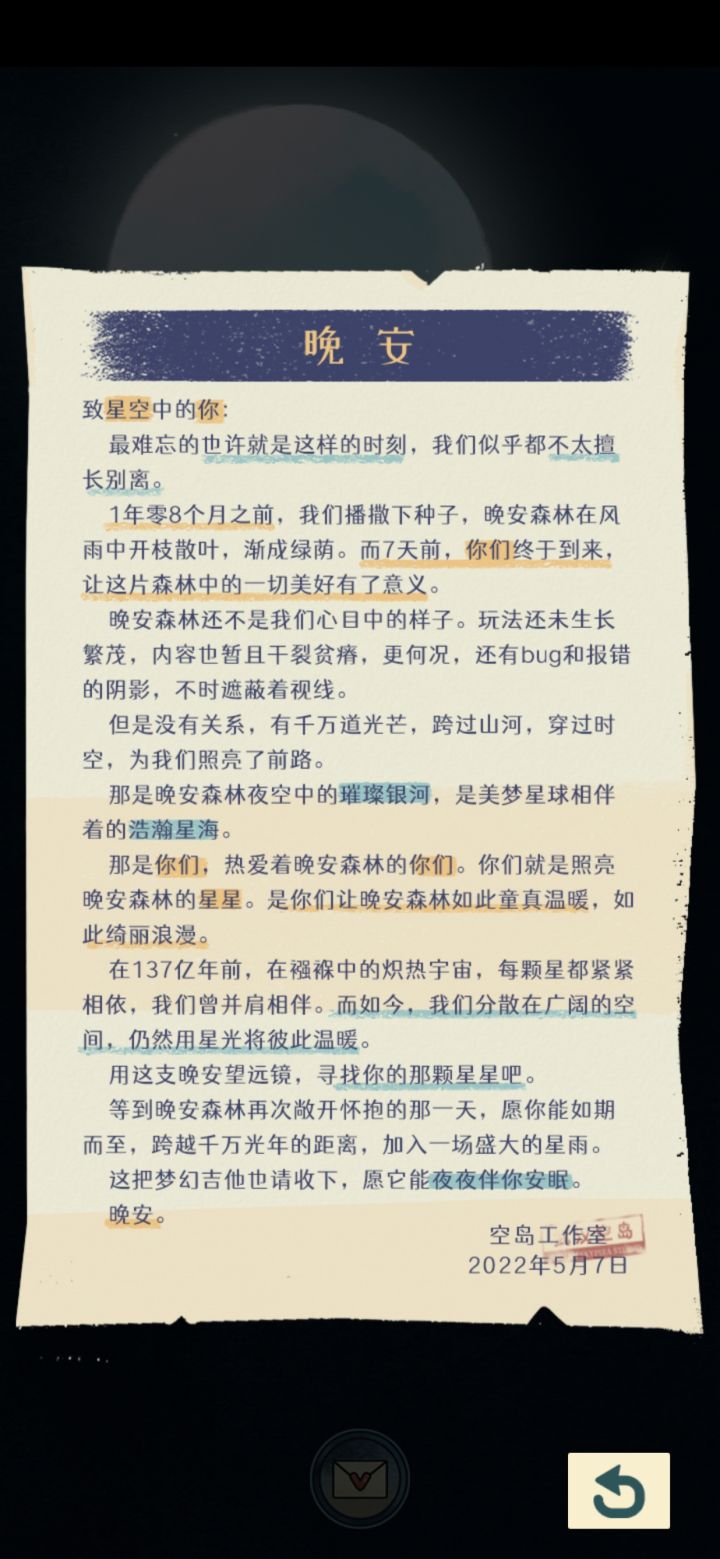 晚 安
致星空中的你:
最难忘的也许就是这样的时刻，我们似乎都不太擅
长别离。
1年零8个月之前，我们播撒下种子，晚安森林在风
雨中开枝散叶，渐成绿荫。而7天前，你们终于到来，
让这片森林中的一切美好有了意义。
晚安森林还不是我们心目中的样子。玩法还未生长
繁茂，内容也暂且干裂贫瘠，更何况，还有bug和报错
的阴影，不时遮蔽着视线。
但是没有关系，有千万道光芒，跨过山河，穿过时
空，为我们照亮了前路。
那是晚安森林夜空中的璀璨银河，是美梦星球相伴
着的浩瀚星海。
那是你们，热爱着晚安森林的你们。你们就是照亮
晚安森林的星星。是你们让晚安森林如此童真温暖，如
此绮丽浪漫。
在137亿年前，在襁褓中的炽热宇宙，每颗星都紧紧
相依，我们曾并肩相伴。而如今，我们分散在广阔的空
间，仍然用星光将彼此温暖。
用这支晚安望远镜，寻找你的那颗星星吧。
等到晚安森林再次敞开怀抱的那一天，愿你能如期
而至，跨越千万光年的距离，加入一场盛大的星雨。
这把梦幻吉他也请收下，愿它能夜夜伴你安眠。
晚安。
空岛工作室
2022年5月7日